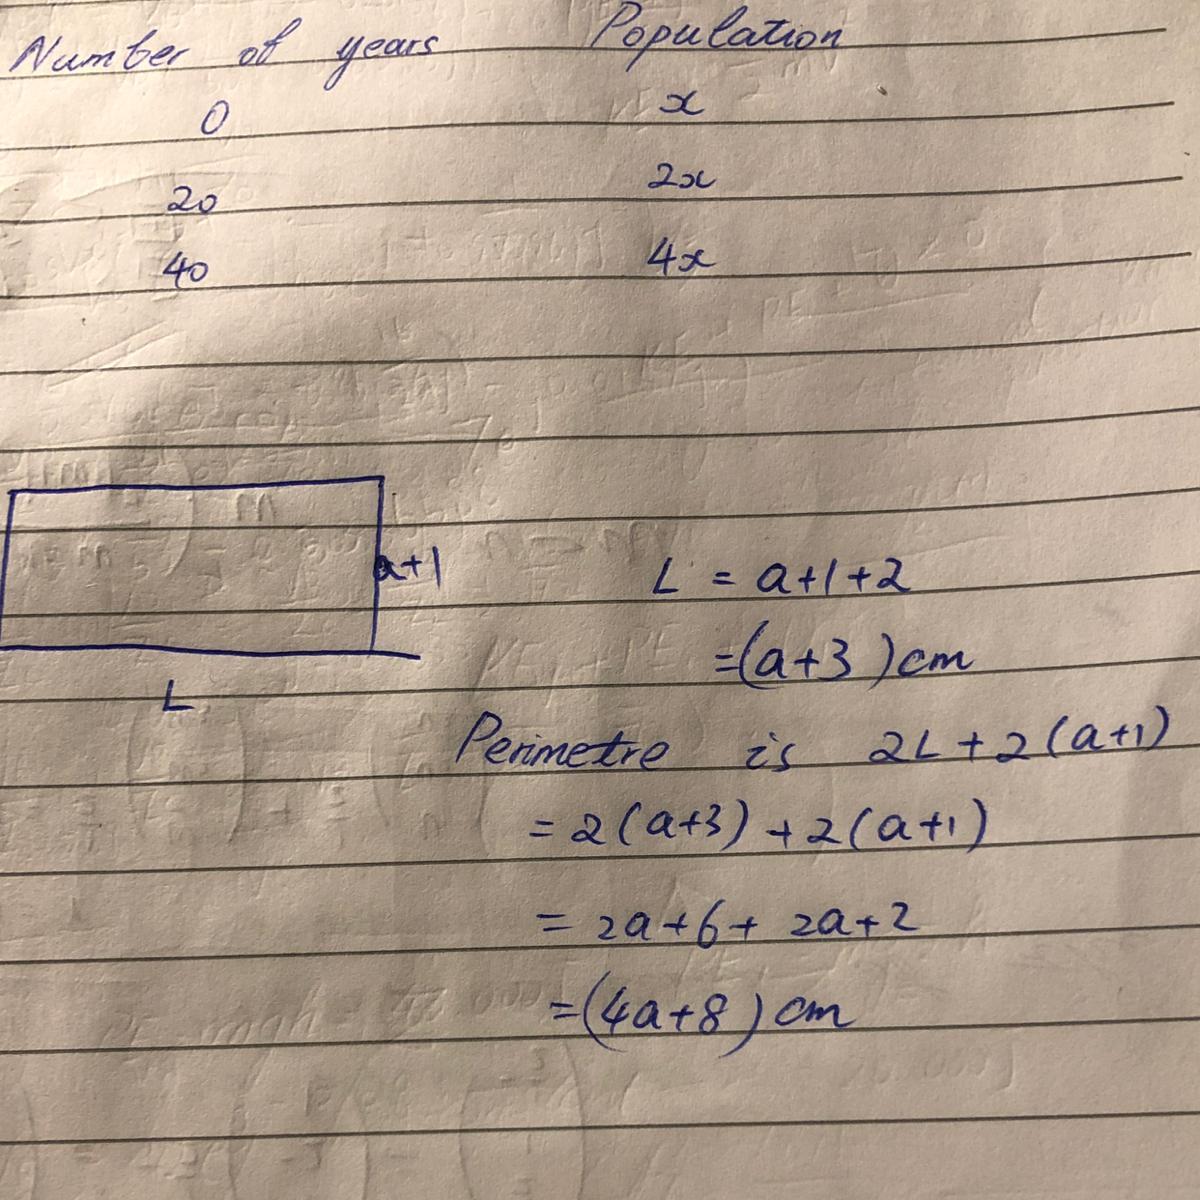 Number of years Population
0 x
20 2x
40 4x
a+1
L = a+1+2
=(a+3)cm
L
Perimetre is 2L+2(a+1)
=2(a+3)+2(a+1)
= 2a+6+ 2a+2
=(4a+8) cm